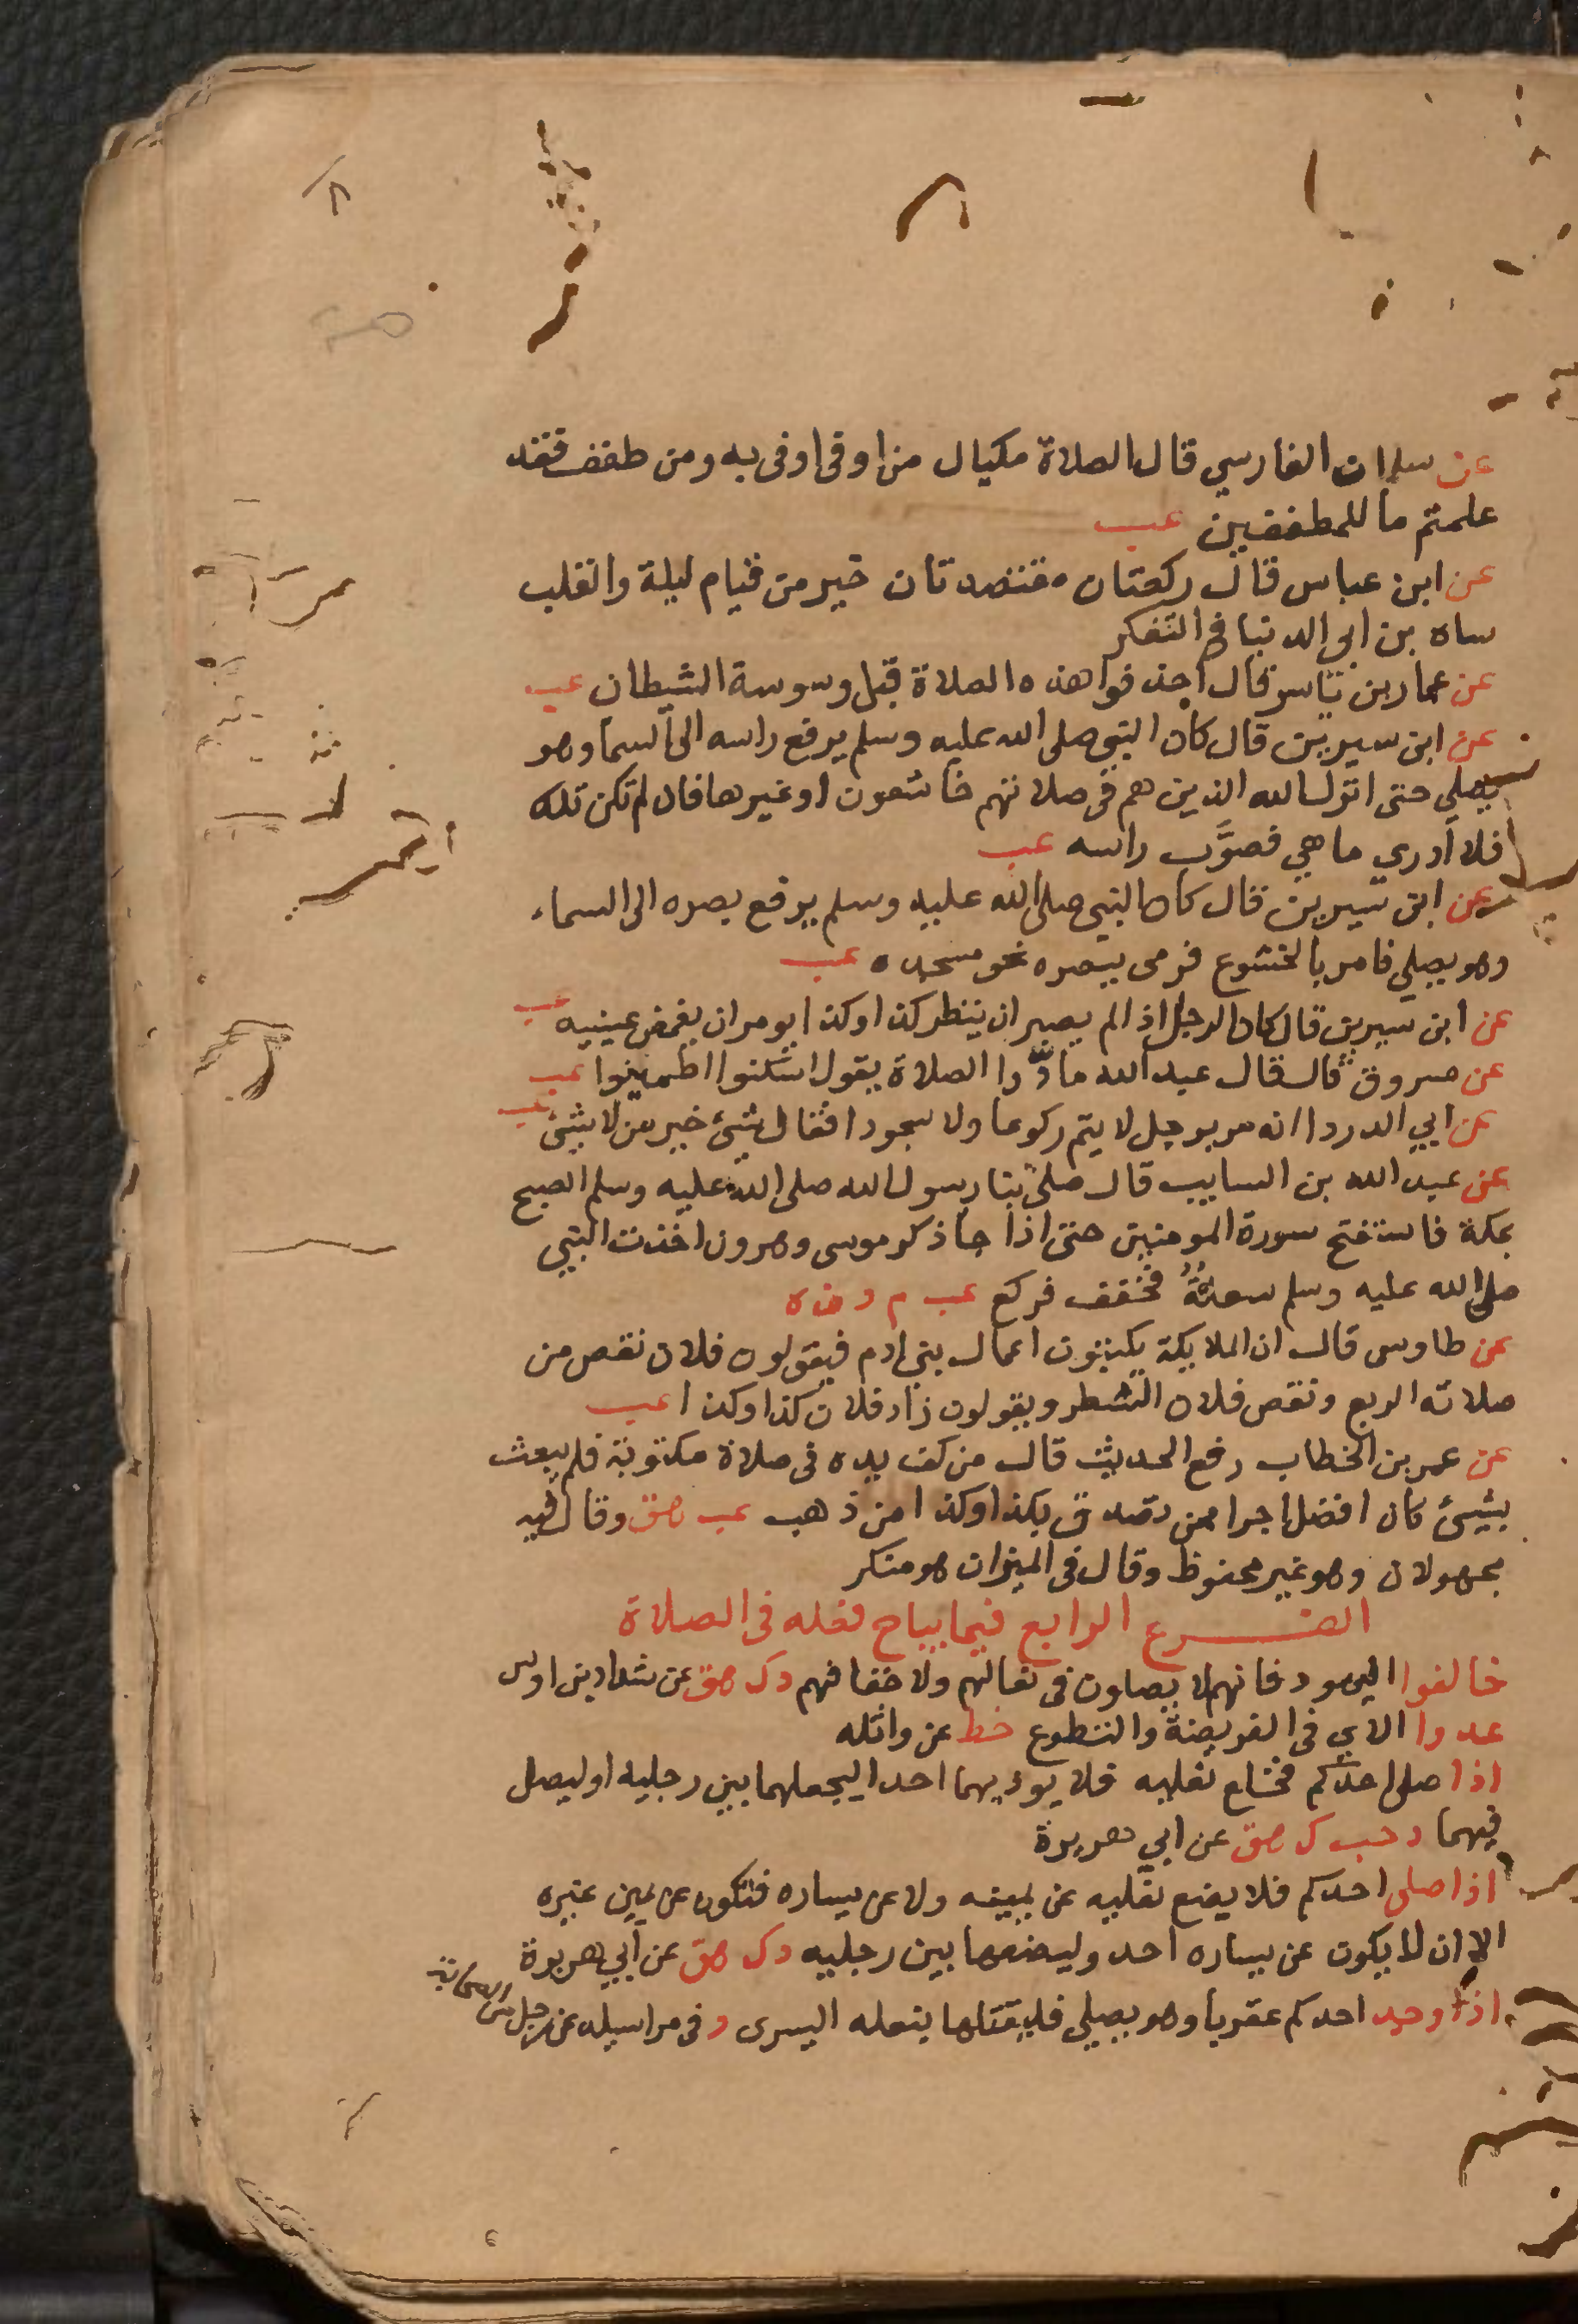 عن سلمان الفارسي قال الصلاة مكيال من اوفى اوفى به ومن طفف فقد
علمتم ما للمطففين عب
عن ابن عباس قال ركعتان مقتصدتان خير من قيام ليلة والقلب
ساه بن ابي الدنيا في التفكر
عن عمار بن ياسر قال احذفوا هذه الصلاة قبل وسوسة الشيطان عب
عن ابن سيرين قال كان النبي صلى الله عليه وسلم يرفع راسه الى السما وهو
يصلي حتى انزل الله الذين هم في صلاتهم خاشعون او غيرها فان لم تكن تلك
فلا ادري ما هي فصوَّب راسه عب
عن ابن سيرين قال كان النبي صلى الله عليه وسلم يرفع بصره الى السماء
وهو يصلي فامر بالخشوع فرمى ببصره نحو مسجده عب
عن ابن سيرين قال كان الرجل اذا لم يصبر ان ينظر كذا وكذا يومر ان يغمض عينيه عب
عن مسروق قال قال عبد الله قارّوا الصلاة يقول اسكنوا اطمينوا عب
عن ابي الدردا انه مر برجل لا يتم ركوعا ولا سجودا فقال شيئ خير من لا شيئ عب
عن عبد الله بن السايب قال صلى بنا رسول الله صلى الله عليه وسلم الصبح
بمكة فاستفتح سورة المومنين حتى اذا جا ذكر موسى وهرون اخذت النبي
صلى الله عليه وسلم سعلةٌ فخفف فركع عب م د ن ه
عن طاوس قال ان الملايكة يكتبون اعمال بني ادم فيقولون فلان نقص من
صلاته الربع ونقص فلان الشطر ويقولون زاد فلان كذا وكذا عب
عن عمر بن الخطاب رفع الحديث قال من كف يده في صلاة مكتوبة فلم يعبث
بشيئ كان افضل اجرا ممن تصدق بكذا وكذا من ذهب عب هق وقال فيه
مجهولان وهو غير محفوظ وقال في الميزان هو منكر
الفرع الرابع فيما يباح فعله في الصلاة
خالفوا اليهود فانهم لا يصلون في نعالهم ولا خفافهم د ك هق عن شداد بن اوس
عدوا الاي في الفريضة والتطوع خط عن واثله
اذا صلى احدكم فخلع نعليه فلا يوذ بهما احدا ليجعلهما بين رجليه او ليصل
فيهما د حب ك هق عن ابي هريرة
اذا صلى احدكم فلا يضع نعليه عن يمينه ولا عن يساره فتكون عن يمين غيره
الا ان لا يكون عن يساره احد وليضعهما بين رجليه د ك هق عن ابي هريرة
اذا وجد احدكم عقربا وهو يصلي فليقتلها بنعله اليسرى د في مراسيله عن رجل من الصحابة